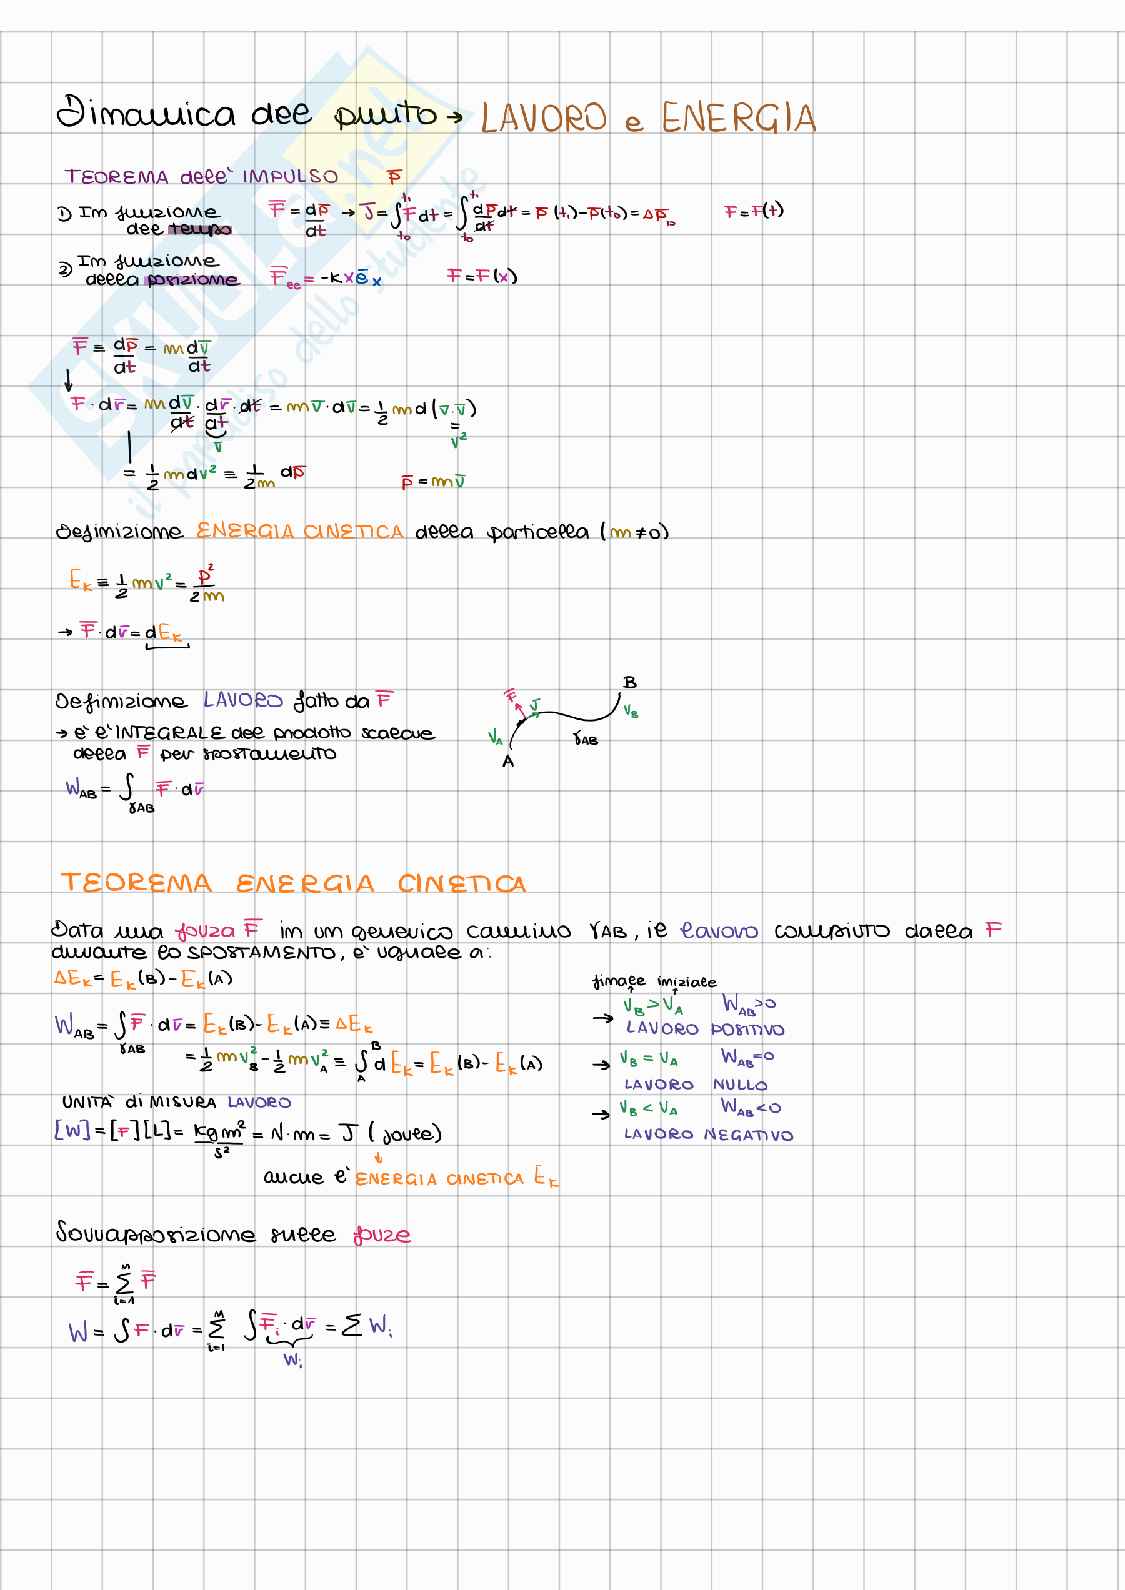 Dinamica del punto → LAVORO e ENERGIA
TEOREMA dell' IMPULSO p̄
1) In funzione del tempo F̄ = dp̄/dt → J̄ = ∫_{t₀}^{t₁} F̄ dt = ∫_{t₀}^{t₁} dp̄/dt dt = p̄(t₁) - p̄(t₀) = Δp̄ F̄ = F̄(t)
2) In funzione della posizione F̄el = -kxēx F̄ = F̄(x)
F̄ = dp̄/dt = m dv̄/dt
↓
F̄ · dr̄ = m dv̄/dt · dr̄/dt · dt = m v̄ · dv̄ = 1/2 m d(v̄·v̄)
v̄
= v²
= 1/2 m dv² = 1/2m dp̄ p̄ = mv̄
Definizione ENERGIA CINETICA della particella (m≠0)
Ek ≡ 1/2 mv² = p²/2m
→ F̄ · dr̄ = dEk
Definizione LAVORO fatto da F̄
→ è l'INTEGRALE del prodotto scalare
della F̄ per spostamento
W_AB = ∫_{γAB} F̄ · dr̄
F̄ v̄ B
V_A V_B
A γAB
TEOREMA ENERGIA CINETICA
Data una forza F̄ in un generico cammino γAB, il lavoro compiuto dalla F
durante lo SPOSTAMENTO, è uguale a:
ΔEk = Ek(B) - Ek(A)
W_AB = ∫_{γAB} F̄ · dr̄ = Ek(B) - Ek(A) ≡ ΔEk
= 1/2 mv²_B - 1/2 mv²_A ≡ ∫_A^B dEk = Ek(B) - Ek(A)
finale iniziale
→ V_B > V_A W_AB > 0
LAVORO POSITIVO
→ V_B = V_A W_AB = 0
LAVORO NULLO
→ V_B < V_A W_AB < 0
LAVORO NEGATIVO
UNITÀ di MISURA LAVORO
[W] = [F][L] = kg m²/s² = N·m = J (joule)
↓
anche è ENERGIA CINETICA Ek
Sovrapposizione sulle forze
F̄ = Σ_{i=1}^{n} F̄
W = ∫F · dr̄ = Σ_{i=1}^{n} ∫F̄i · dr̄ = Σ Wi
Wi
SKUOLA.net
il paradiso dello studente